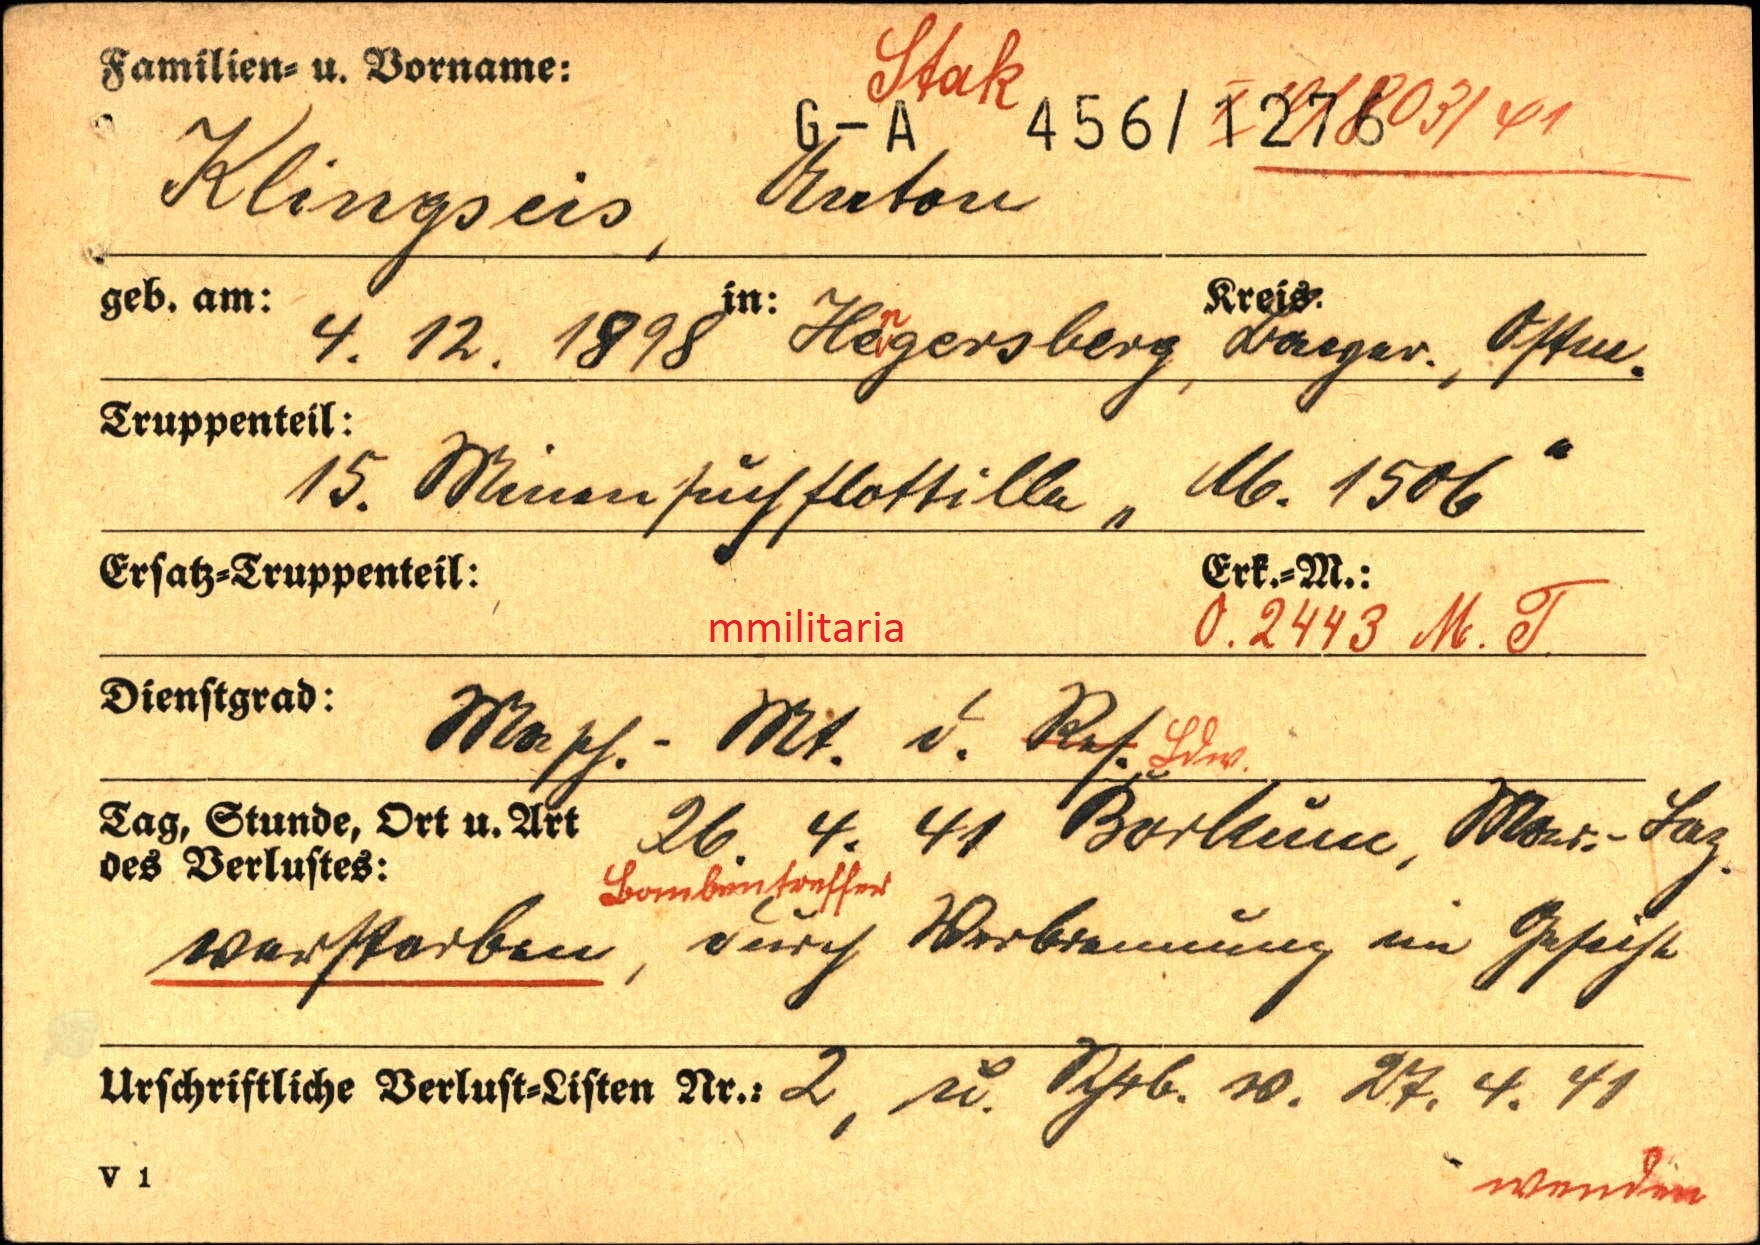 Familien- u. Vorname:
Stak
G-A 456/1276
Klingseis, Anton
geb. am: 4. 12. 1898 in: Hengersberg, Kreis:
Truppenteil:
15. Minensuchflottille „M. 1506“
Ersatz-Truppenteil: Erk.-M.:
mmilitaria
O. 2443 M. T
Dienstgrad: Masch.-Mt. d. Res. Ldw.
Tag, Stunde, Ort u. Art
des Verlustes:
26. 4. 41 Borkum, Mar.-Laz.
Bombentreffer
verstorben, durch Verbrennung im Gesicht
Urschriftliche Verlust-Listen Nr.: 2, u. Schrb. v. 27. 4. 41
V 1
wenden